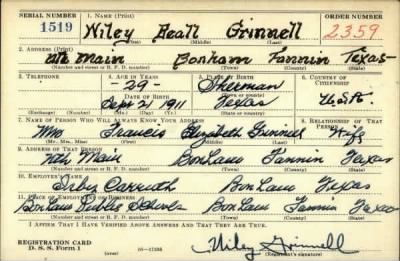 SERIAL NUMBER 1. NAME (Print) ORDER NUMBER
1519 Wiley Beall Grinnell 2359
(First) (Middle) (Last)
2. ADDRESS (Print)
Main Bonham Fannin Texas
(Number and street or R. F. D. number) (Town) (County) (State)
3. TELEPHONE 4. AGE IN YEARS 5. PLACE OF BIRTH 6. COUNTRY OF CITIZENSHIP
29 Sherman
DATE OF BIRTH (Town or county)
Sept 21 1911 Texas U.S.A.
(Exchange) (Number) (Mo.) (Day) (Yr.) (State or country)
7. NAME OF PERSON WHO WILL ALWAYS KNOW YOUR ADDRESS 8. RELATIONSHIP OF THAT PERSON
Mrs Francis Elizabeth Grinnell Wife
(Mr., Mrs., Miss) (First) (Middle) (Last)
9. ADDRESS OF THAT PERSON
Main Bonham Fannin Texas
(Number and street or R. F. D. number) (Town) (County) (State)
10. EMPLOYER'S NAME
Carruth Bonham Texas
11. PLACE OF EMPLOYMENT OR BUSINESS
Bonham Public Schools Bonham Fannin Texas
(Number and street or R. F. D. number) (Town) (County) (State)
I AFFIRM THAT I HAVE VERIFIED ABOVE ANSWERS AND THAT THEY ARE TRUE.
REGISTRATION CARD
D. S. S. Form 1 (over) Wiley Grinnell